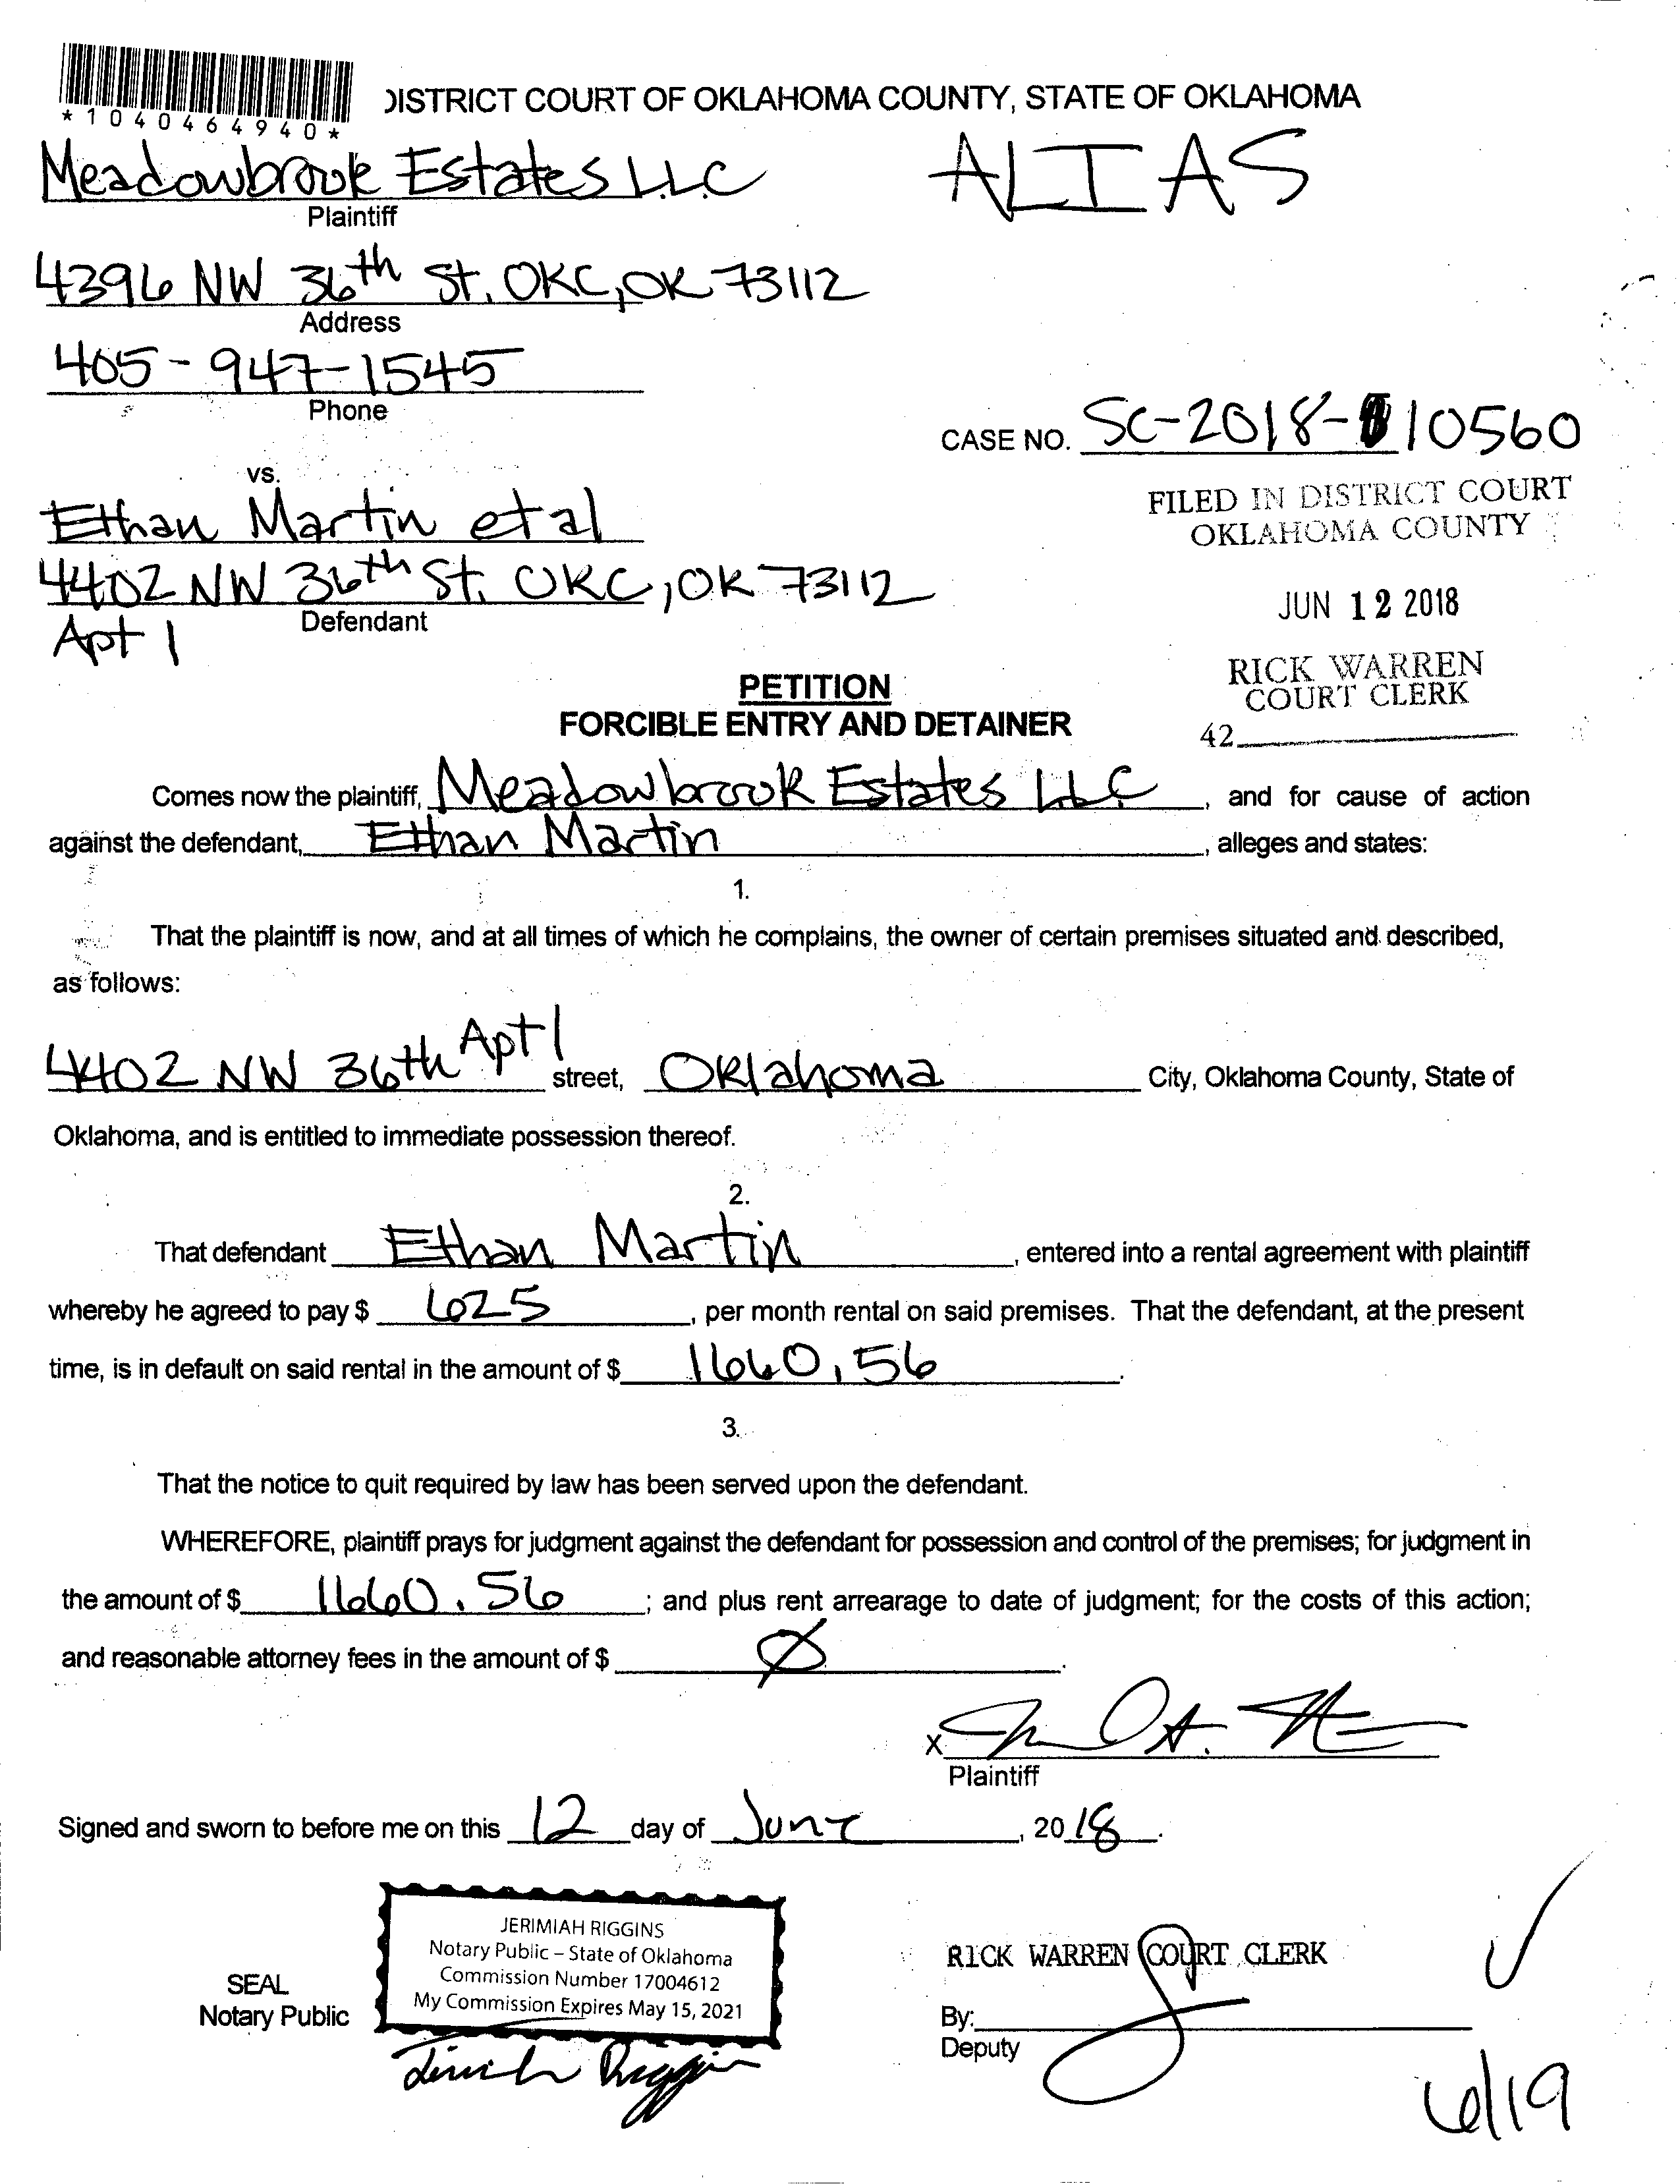 *1040464940*
DISTRICT COURT OF OKLAHOMA COUNTY, STATE OF OKLAHOMA
Meadowbrook Estates LLC
ALIAS
Plaintiff
4396 NW 36th St. OKC, OK 73112
Address
405-947-1545
Phone
CASE NO. SC-2018-10560
vs.
FILED IN DISTRICT COURT
OKLAHOMA COUNTY
Ethan Martin et al
4402 NW 36th St. OKC, OK 73112
Defendant
Apt 1
JUN 12 2018
RICK WARREN
COURT CLERK
42
PETITION
FORCIBLE ENTRY AND DETAINER
Comes now the plaintiff, Meadowbrook Estates LLC, and for cause of action
against the defendant, Ethan Martin, alleges and states:
1.
That the plaintiff is now, and at all times of which he complains, the owner of certain premises situated and described,
as follows:
4402 NW 36th Apt 1 street, Oklahoma City, Oklahoma County, State of
Oklahoma, and is entitled to immediate possession thereof.
2.
That defendant Ethan Martin, entered into a rental agreement with plaintiff
whereby he agreed to pay $ 625, per month rental on said premises. That the defendant, at the present
time, is in default on said rental in the amount of $ 1660.56.
3.
That the notice to quit required by law has been served upon the defendant.
WHEREFORE, plaintiff prays for judgment against the defendant for possession and control of the premises; for judgment in
the amount of $ 1660.56; and plus rent arrearage to date of judgment; for the costs of this action;
and reasonable attorney fees in the amount of $ Ø.
X
Plaintiff
Signed and sworn to before me on this 12 day of June, 2018.
JERIMIAH RIGGINS
Notary Public – State of Oklahoma
Commission Number 17004612
My Commission Expires May 15, 2021
SEAL
Notary Public
RICK WARREN COURT CLERK
By:
Deputy
6/19